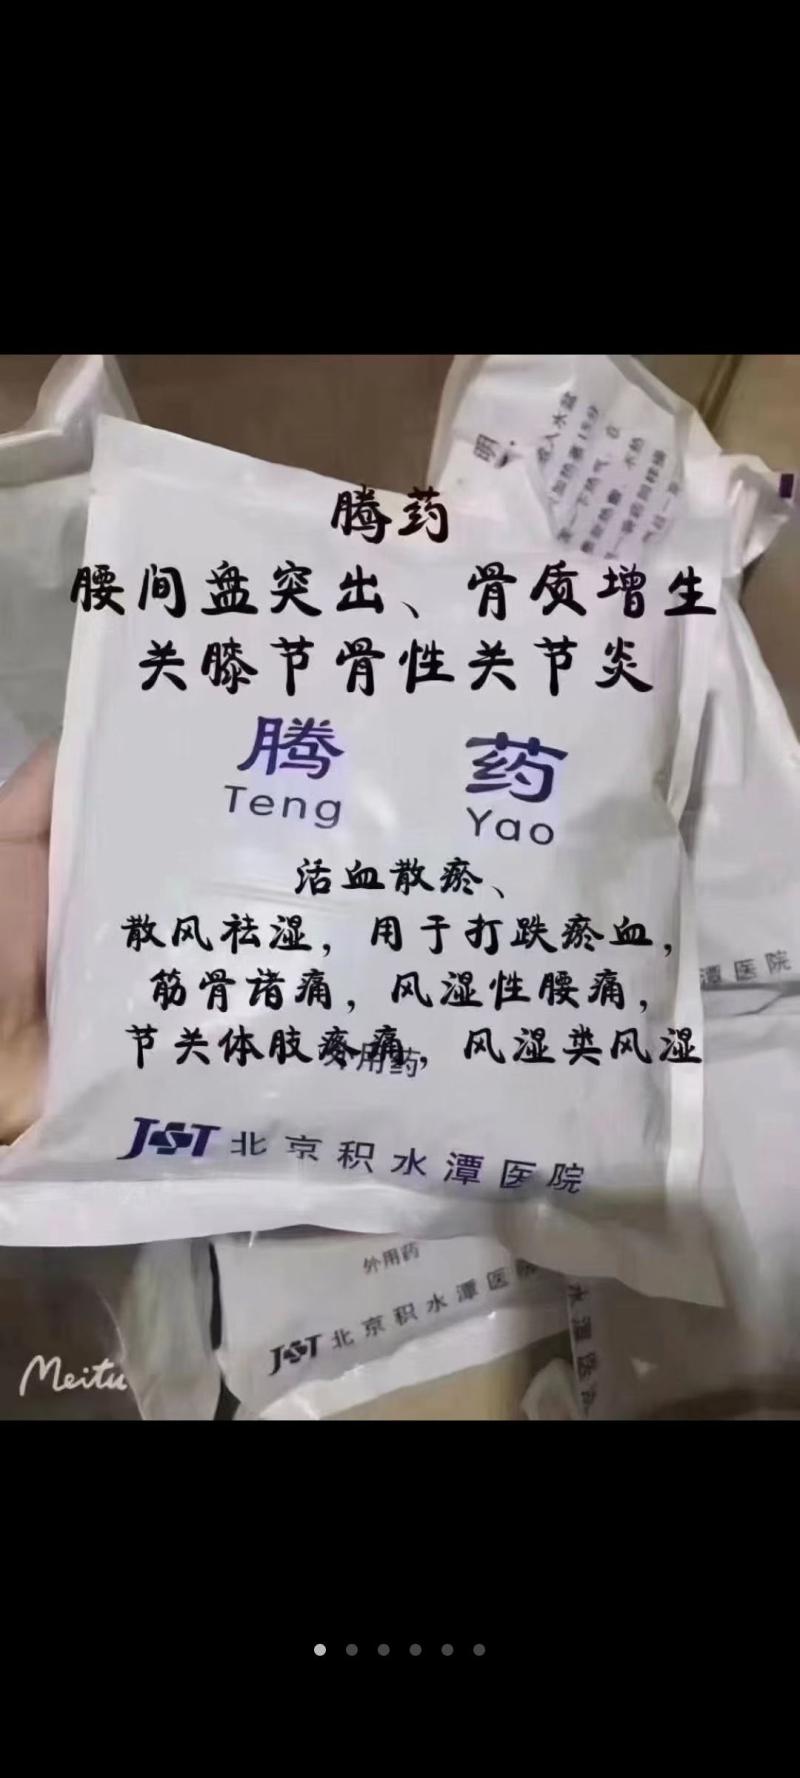 明：
腾药
腰间盘突出、骨质增生
关膝节骨性关节炎
腾药
Teng Yao
活血散瘀、
散风祛湿，用于打跌瘀血，
筋骨诸痛，风湿性腰痛，
节关体肢疼痛，风湿类风湿
外用药
JST 北京积水潭医院
潭医院
外用药
JST 北京积水潭医院
水潭医
Meitu